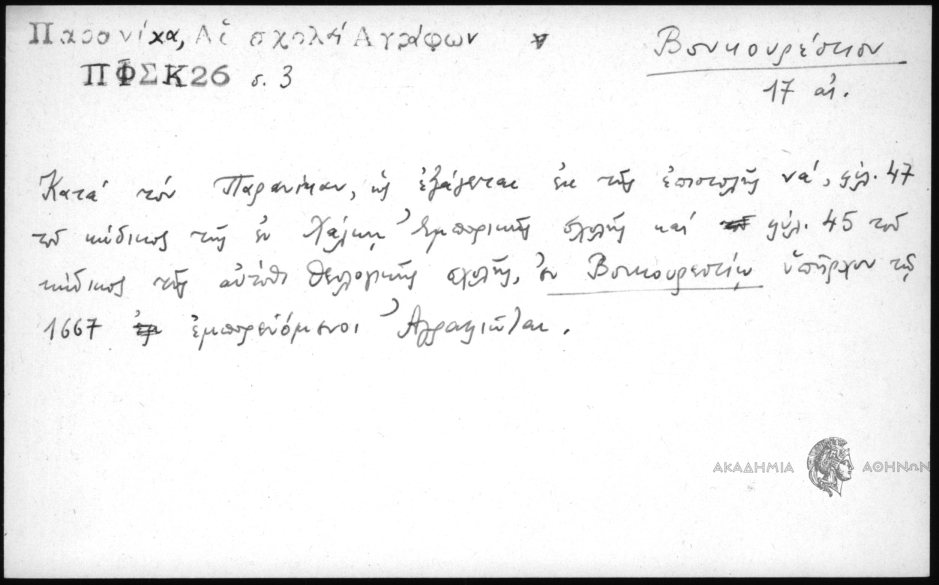 Παρανίκα, Αἱ σχολαί Αγράφων
Βουκουρέστιον
ΠΦΣΚ26 σ. 3
17 αἰ.
Κατά τόν Παρανίκαν, ὡς ἐξάγεται ἐκ τῆς ἐπιστολῆς να', φύλ. 47
τοῦ κώδικος τῆς ἐν Χάλκῃ Ἐμπορικῆς σχολῆς καί φύλ. 45 τοῦ
κώδικος τῆς αὐτόθι θεολογικῆς σχολῆς, ἐν Βουκουρεστίῳ ὑπῆρχον τῷ
1667 ἐμπορευόμενοι Ἀγραφιῶται.
ΑΚΑΔΗΜΙΑ ΑΘΗΝΩΝ